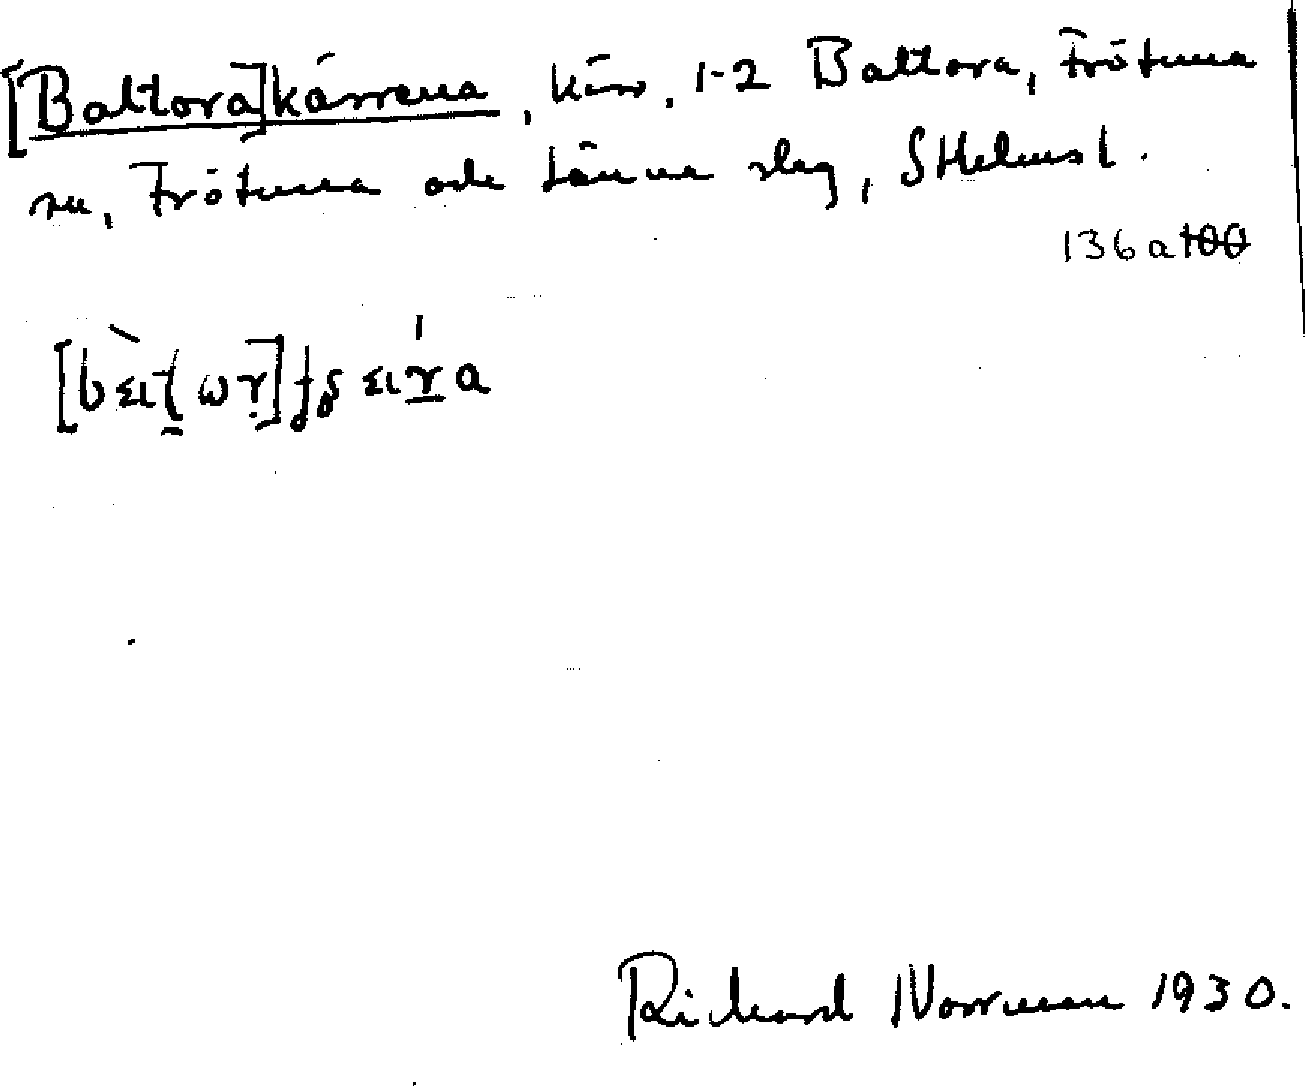 [Baltora]kärrena, kärr, 1-2 Baltora, Frötuna
sn, Frötuna och Länna slag, Sthlms l.
136 a
Richard Norrman 1930.